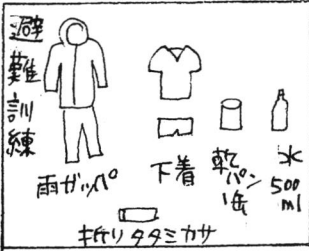 避難訓練
雨ガッパ
下着
乾パン
1缶
水
500
ml
折リタタミカサ